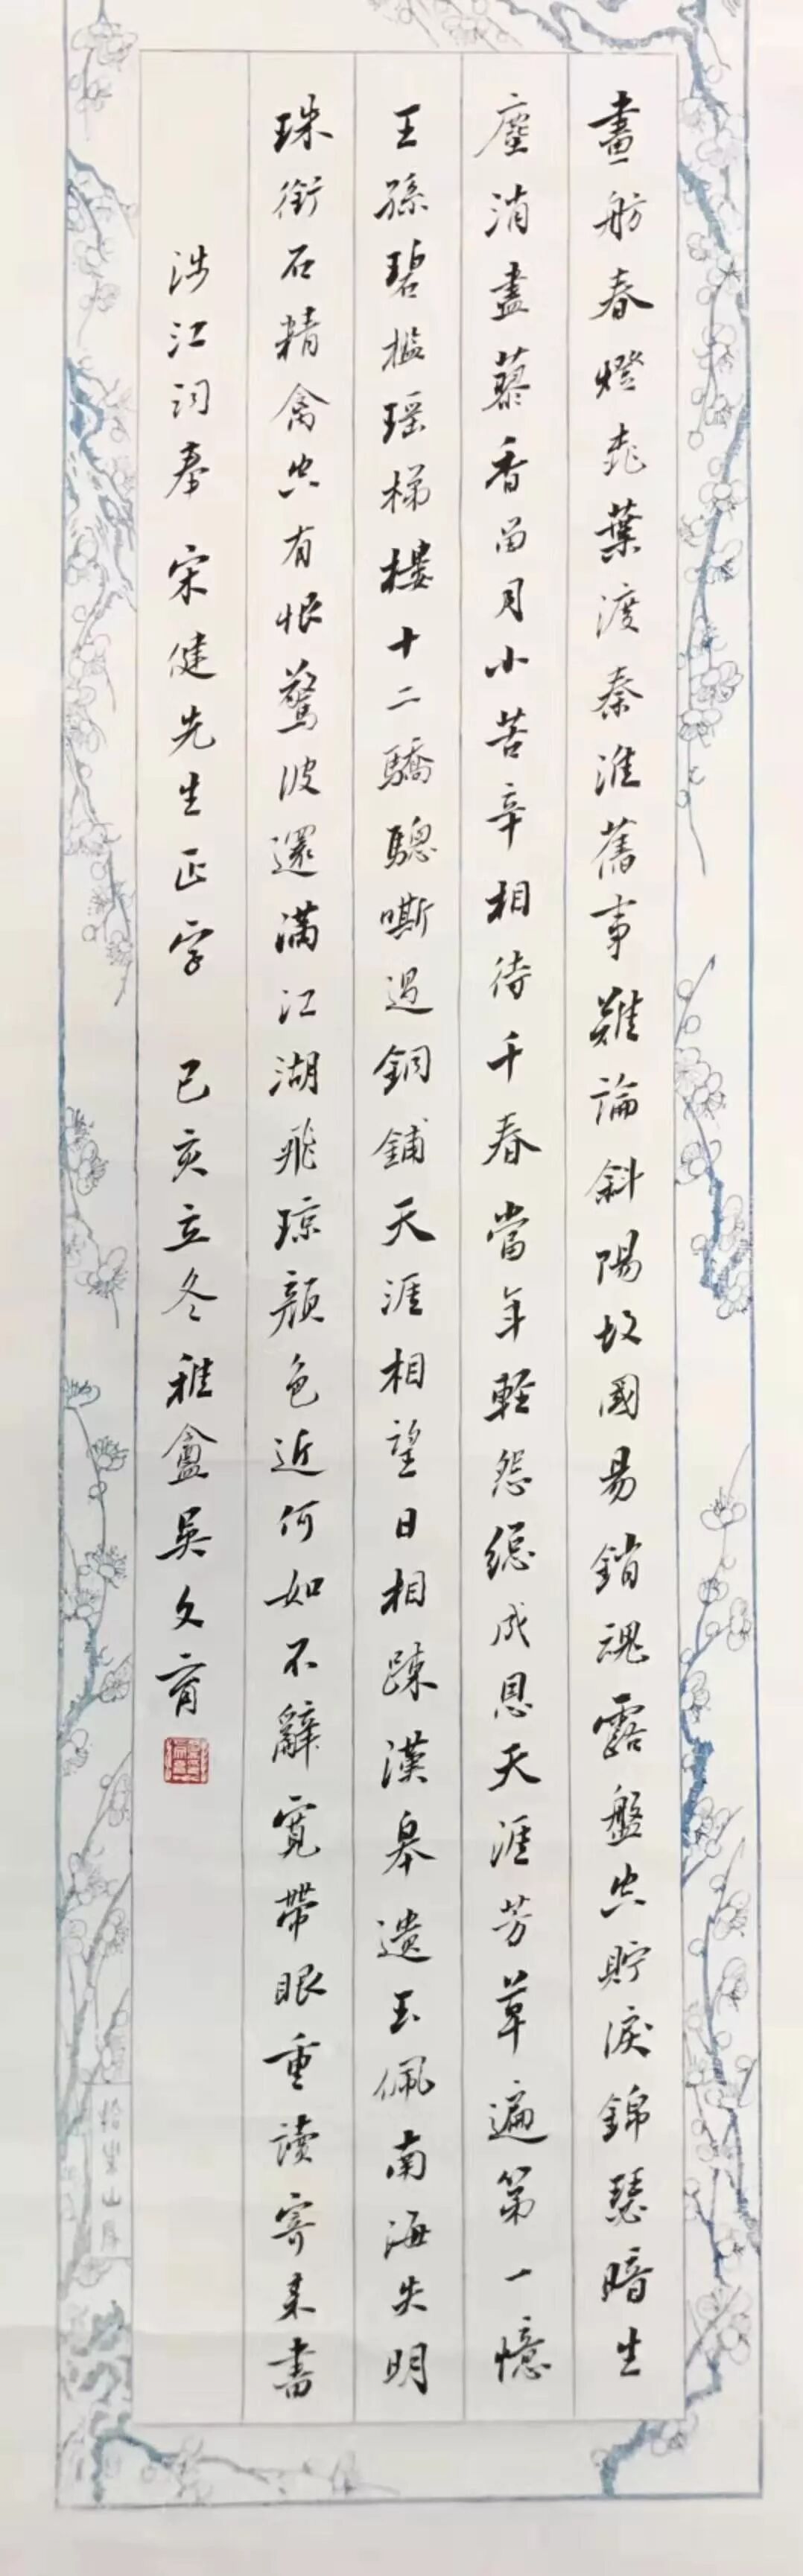 畫舫春燈桃葉渡秦淮舊事難論斜陽故國易銷魂露盤空貯淚錦瑟暗生
塵消盡蘼香留月小苦辛相待千春當年輕怨總成恩天涯芳草遍第一憶
王孫碧檻瑤梯樓十二驕驄嘶過銅鋪天涯相望日相踈漢皋遺玉佩南海失明
珠銜石精禽空有恨驚波還滿江湖飛瓊顏色近何如不辭寬帶眼重讀寄來書
涉江詞奉 宋健先生正字 己亥立冬稚盦吳文育
拾柴山房